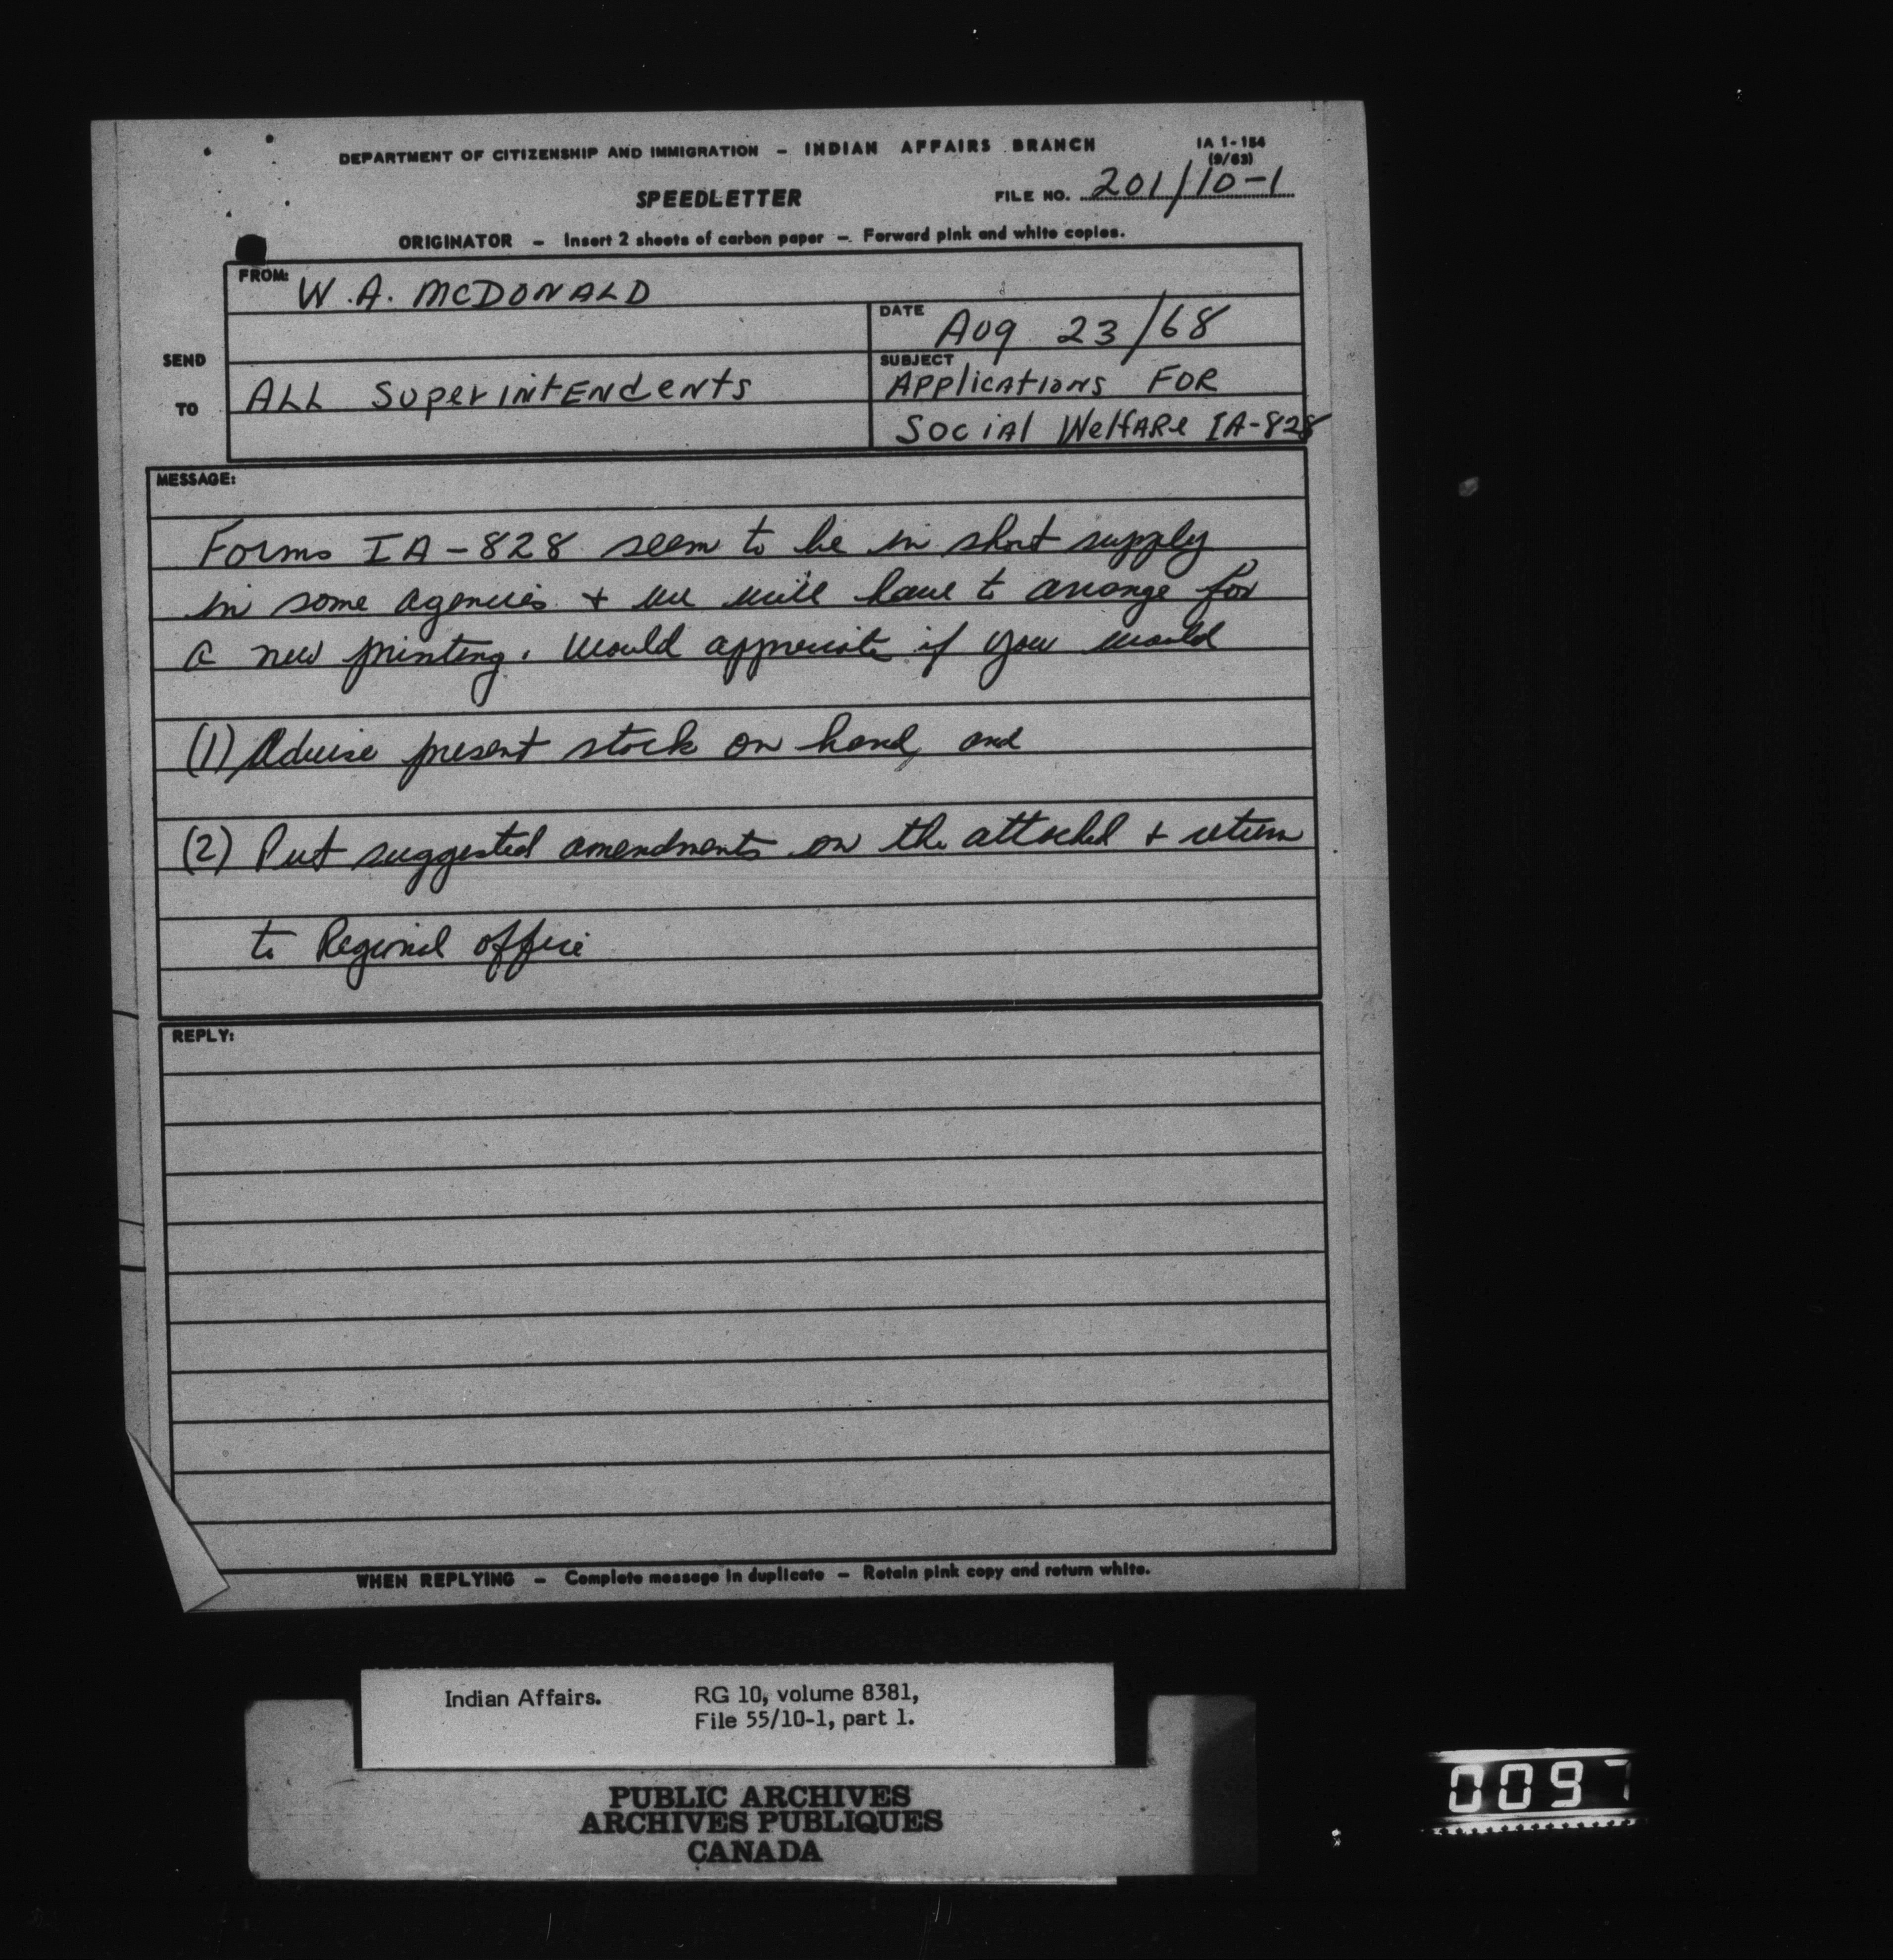 DEPARTMENT OF CITIZENSHIP AND IMMIGRATION – INDIAN AFFAIRS BRANCH
IA 1-154
(9/63)
SPEEDLETTER
FILE NO. 201/10-1
ORIGINATOR – Insert 2 sheets of carbon paper – Forward pink and white copies.
FROM: W.A. McDONALD
DATE Aug 23/68
SEND
SUBJECT
TO
ALL Superintendents
Applications FOR
Social Welfare IA-828
MESSAGE:
Forms IA-828 seem to be in short supply
in some agencies + we will have to arrange for
a new printing. Would appreciate if you would
(1) Advise present stock on hand, and
(2) Put suggested amendments on the attached + return
to Regional office
REPLY:
WHEN REPLYING – Complete message in duplicate – Retain pink copy and return white.
Indian Affairs. RG 10, volume 8381,
File 55/10-1, part 1.
PUBLIC ARCHIVES
ARCHIVES PUBLIQUES
CANADA
0097